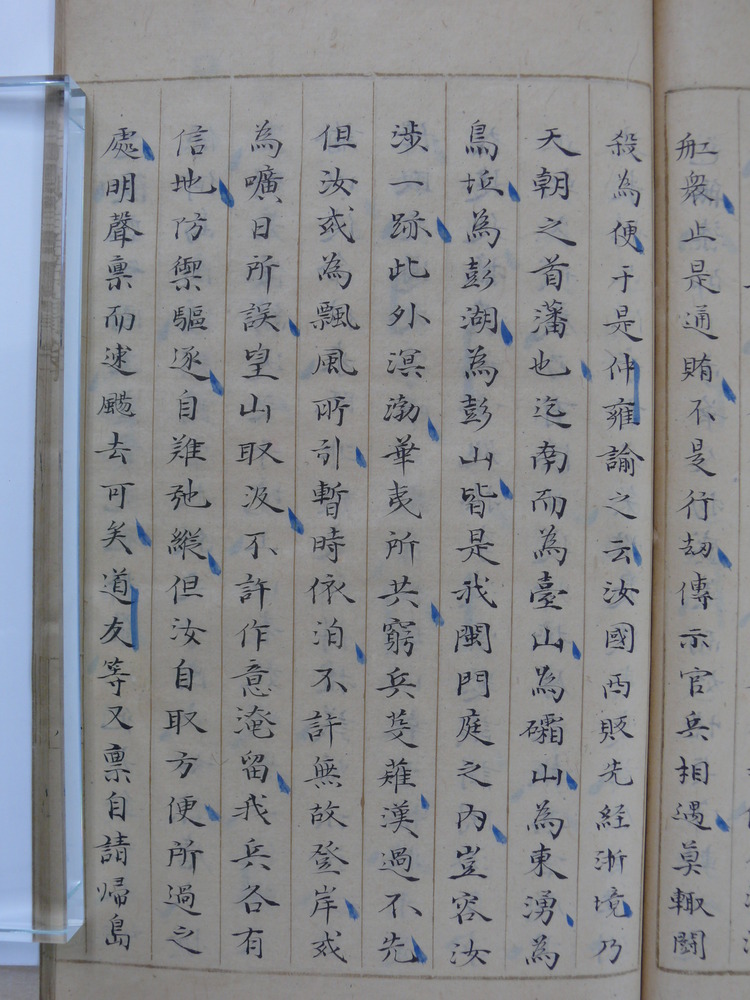 舡衆止是通賄不是行刼傳示官兵相遇莫輙鬪
殺為便于是仲雍諭之云汝國西販先経浙境乃
天朝之首藩也迄南而為臺山為礵山為東湧為
鳥坵為彭湖為彭山皆是我閩門庭之内豈容汝
涉一跡此外溟渤華夷所共窮兵芟薙漢過不先
但汝或為飄風所引暫時依泊不許無故登岸或
為曠日所誤望山取汲不許作意淹留我兵各有
信地防禦驅逐自難弛縱但汝自取方便所過之
處明聲禀而速颺去可矣道友等又禀自請歸島